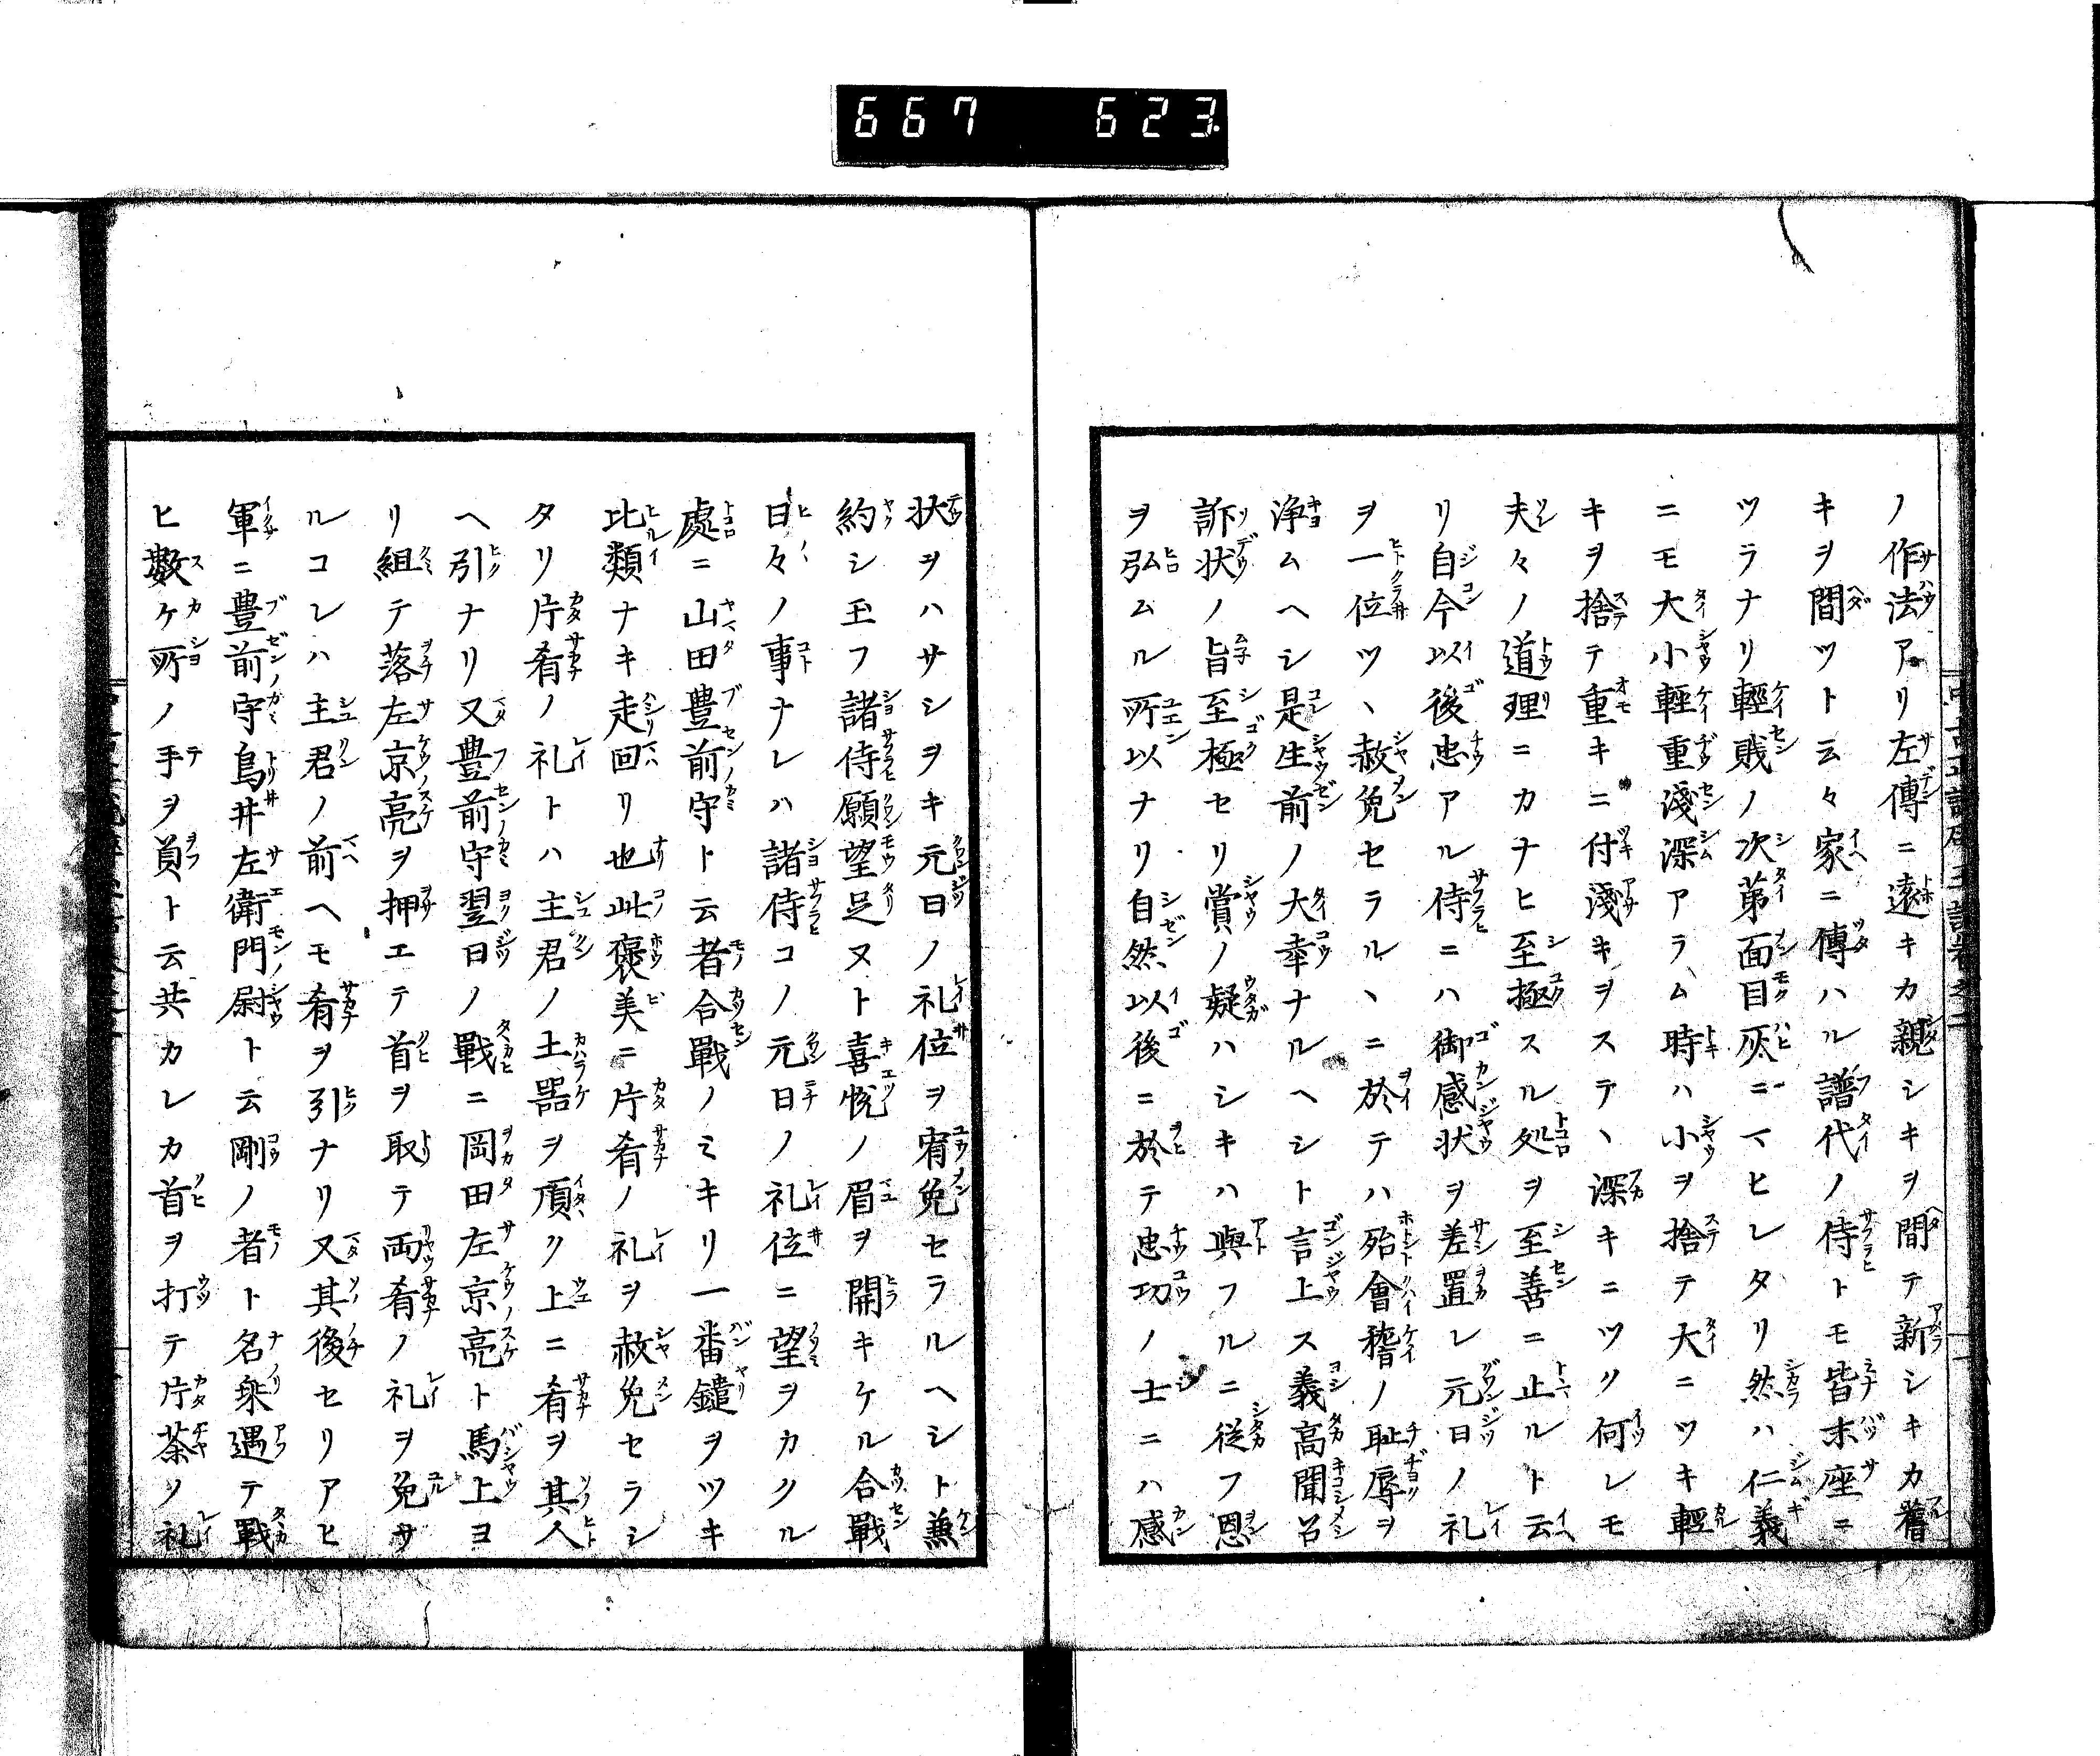 667 623
ノ作法アリ左傳ニ遠キカ親シキヲ間テ新シキカ舊
キヲ間ツト云々家ニ傳ハル譜代ノ侍トモ皆末座ニ
ツラナリ輕賎ノ次第面目灰ニマヒレタリ然ハ仁義
ニモ大小輕重淺深アラム時ハ小ヲ捨テ大ニツキ輕
キヲ捨テ重キニ付淺キヲステヽ深キニツク何レモ
夫々ノ道理ニカナヒ至極スル処ヲ至善ニ止ルト云
リ自今以後忠アル侍ニハ御感状ヲ差置レ元日ノ礼
ヲ一位ツヽ赦免セラルヽニ於テハ殆會稽ノ耻辱ヲ
浄ムヘシ是生前ノ大幸ナルヘシト言上ス義高聞召
訴状ノ旨至極セリ賞ノ疑ハシキハ與フルニ従フ恩
ヲ弘ムル所以ナリ自然以後ニ於テ忠功ノ士ニハ感
状ヲハサシヲキ元日ノ礼位ヲ宥免セラルヘシト兼
約シ玉フ諸侍願望足ヌト喜悦ノ眉ヲ開キケル合戰
日々ノ事ナレハ諸侍コノ元日ノ礼位ニ望ヲカクル
處ニ山田豊前守ト云者合戰ノミキリ一番鑓ヲツキ
比類ナキ走回リ也此褒美ニ片肴ノ礼ヲ赦免セラシ
タリ片肴ノ礼トハ主君ノ土噐ヲ頂ク上ニ肴ヲ其人
ヘ引ナリ又豊前守翌日ノ戰ニ岡田左京亮ト馬上ヨ
リ組テ落左京亮ヲ押エテ首ヲ取テ両肴ノ礼ヲ免サ
ルコレハ主君ノ前ヘモ肴ヲ引ナリ又其後セリアヒ
軍ニ豊前守鳥井左衛門尉ト云剛ノ者ト名乗遇テ戰
ヒ數ケ所ノ手ヲ負ト云共カレカ首ヲ打テ片茶ノ礼